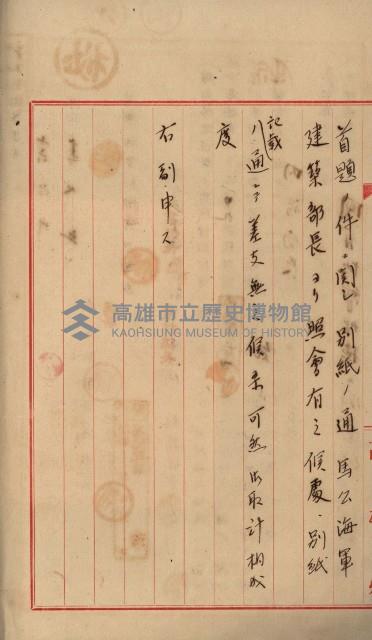 首題ノ件ニ関シ別紙ノ通馬公海軍
建築部長ヨリ照會有之候處、別紙
記載ノ通ニテ差支無之候条可然御取計相成
度
右副申ス
高雄市立歷史博物館
KAOHSIUNG MUSEUM OF HISTORY